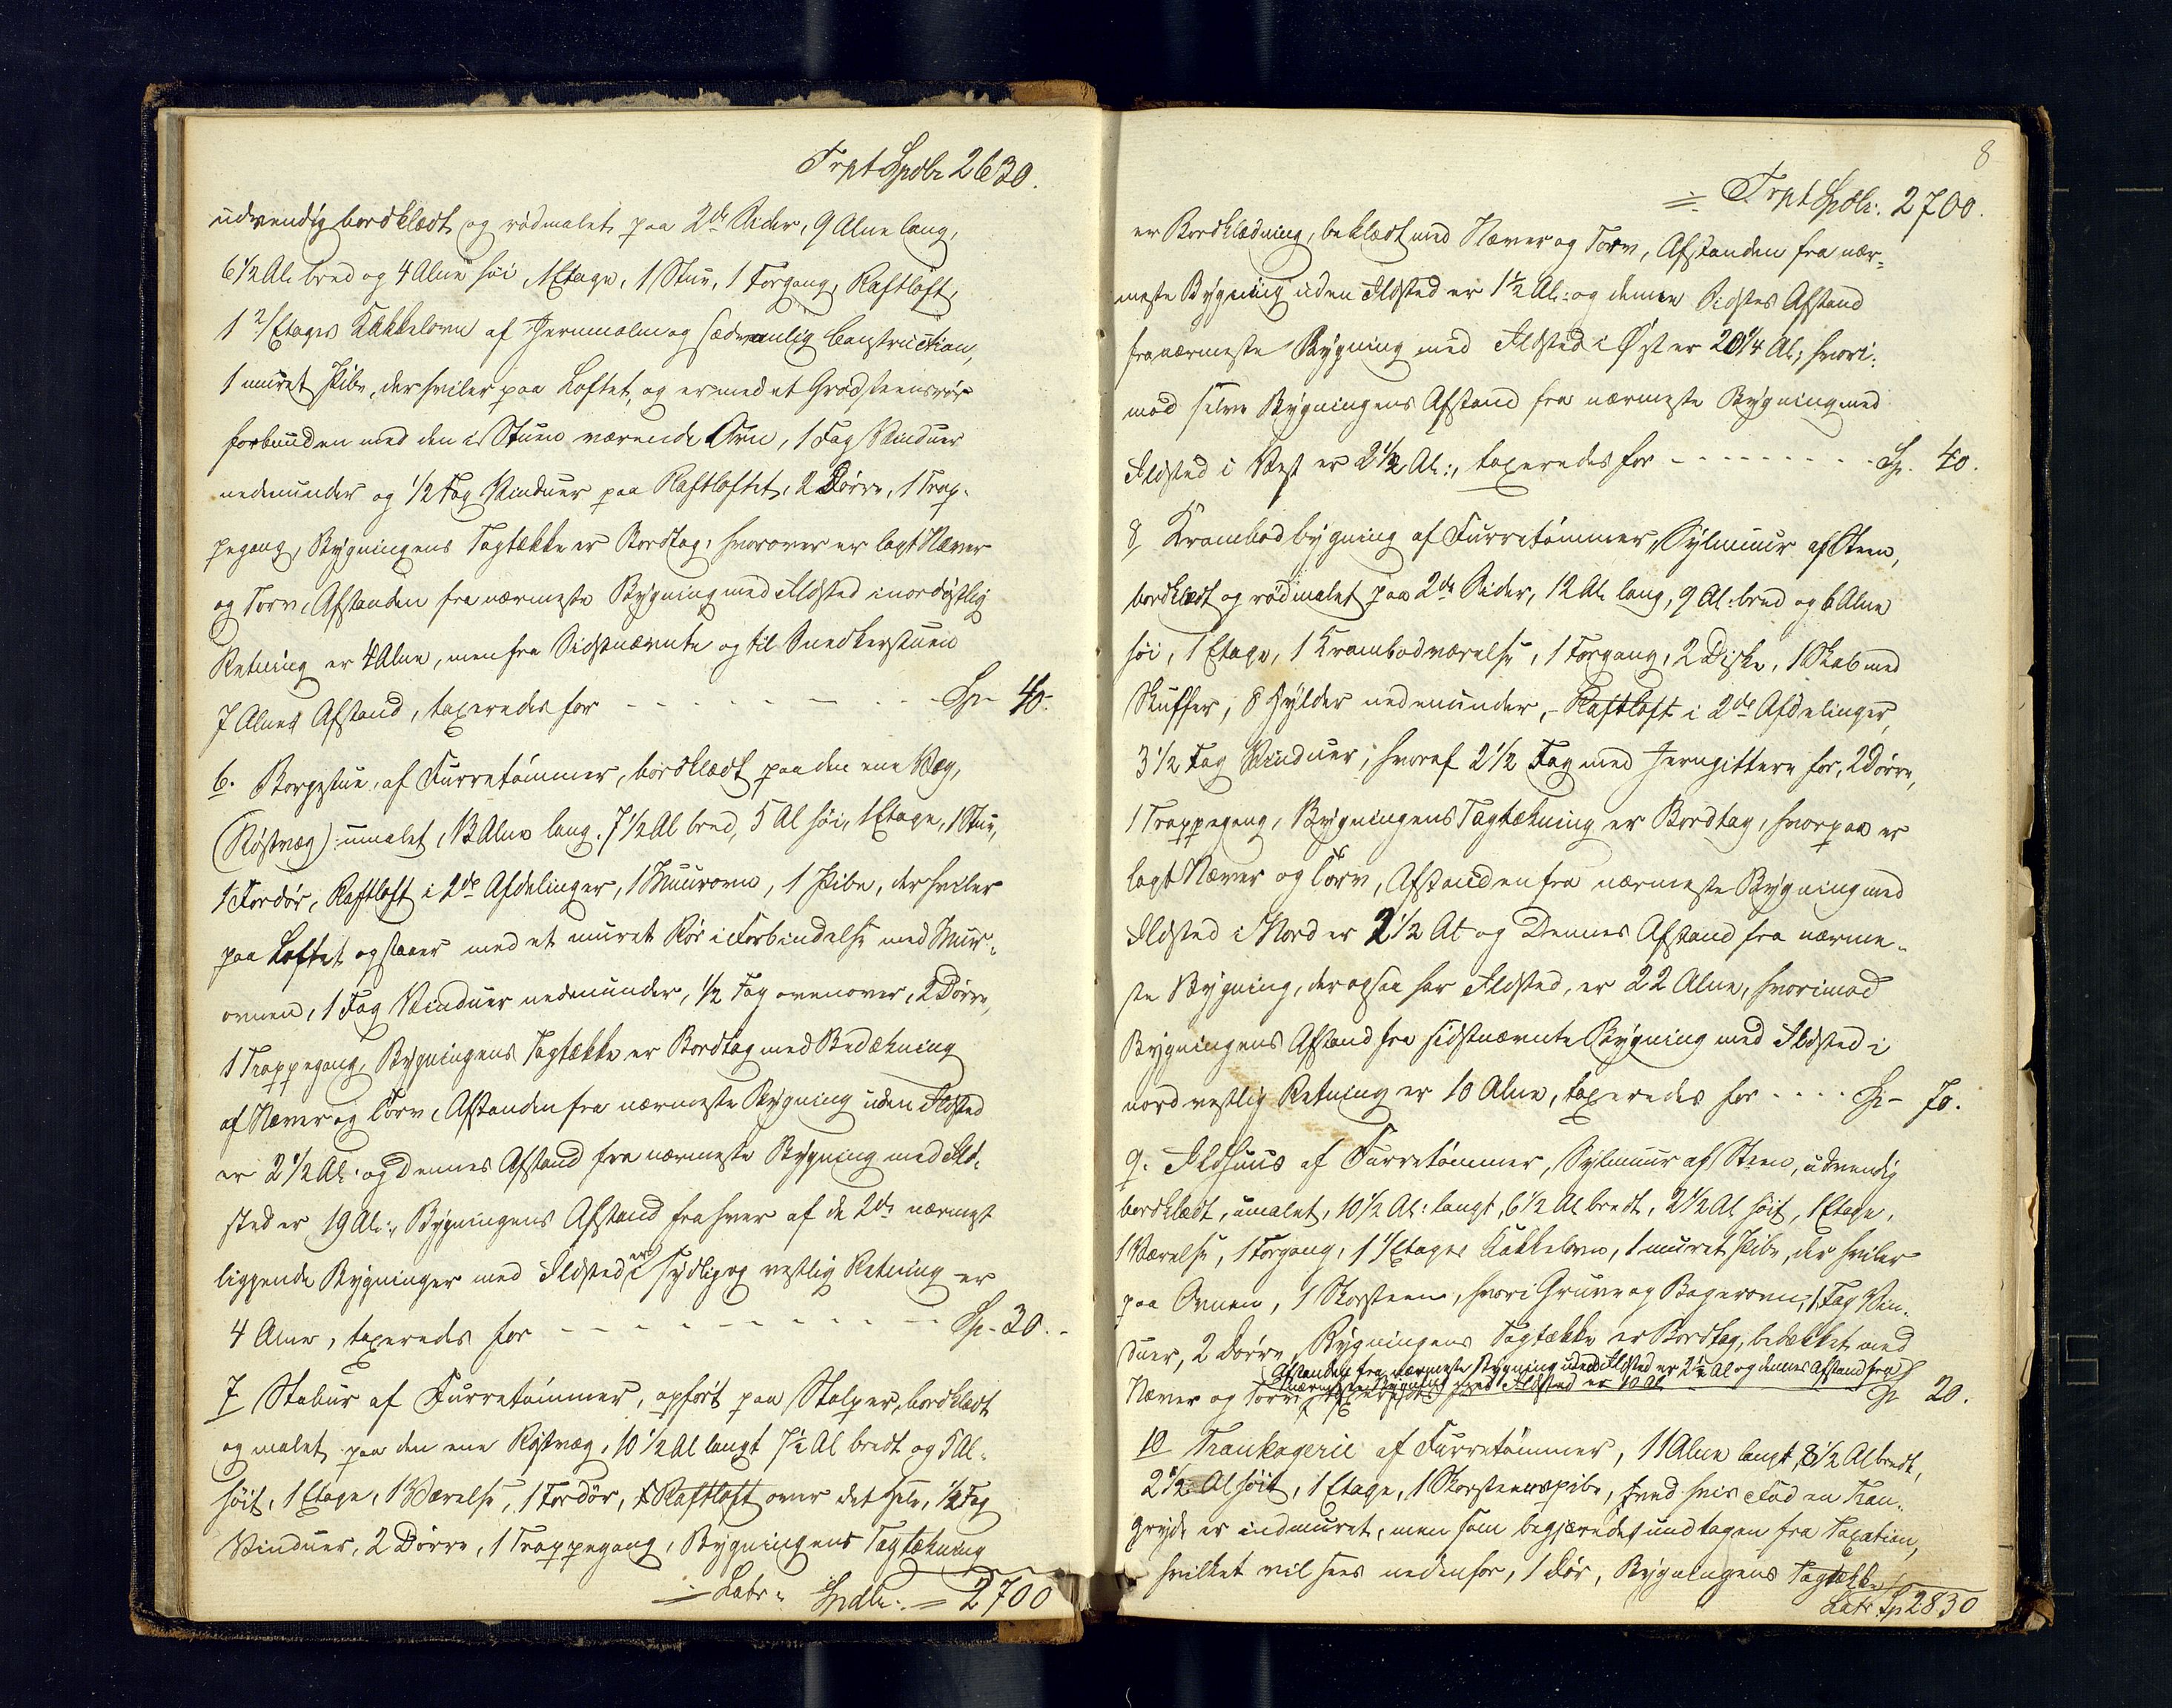 Trpt Spdlr 2630.
udvendig bordklædt og rödmalet paa 2de Sider, 9 Alne lang,
6 1/2 Al. bred og 4 Alne höi, 1 Etage, 1 Stue, 1 Forgang, Raftloft,
1 2/Etages Kakkelovn af Jernmalm og sædvanlig Construction,
1 muret Pibe, der hviler paa Loftet, og er med et Graasteensrör
forbunden med den i Stuen værende Ovn, 1 Fag Vinduer
nedenunder og 1/2 Fag Vinduer paa Raftloftet, 2 Dörre, 1 Trap-
pegang, Bygningens Tagtække er Bordtag, hvorover er lagt Næver
og Torv, Afstanden fra nærmeste Bygning med Ildsted i nordöstlig
Retning er 4 Alne, men fra Sidstnævnte og til Snedkerstuen
7 Alnes Afstand, taxeredes for - - - - - - - Sp- 40.
6. Borgestue, af Furretömmer, bordklædt paa den ene Væg,
(Röstvæg) umalet, 13 Alne lang, 7 1/2 Al bred, 5 Al höi, 1 Etage, 1 Stue,
1 Fordör, Raftloft i 2de Afdelinger, 1 Muurovn, 1 Pibe, der hviler
paa Loftet og staaer med et muret Rör i Forbindelse med Mur-
ovnen, 1 Fag Vinduer nedenunder, 1/2 Fag ovenover, 2 Dörre,
1 Trappegang, Bygningens Tagtække er Bordtag med Bedækning
af Næver og Torv, Afstanden fra nærmeste Bygning uden Ildsted
er 2 1/2 Al. og Dennes Afstand fra nærmeste Bygning med Ild-
sted er 19 Al:, Bygningens Afstand fra hver af de 2de nærmest
liggende Bygninger med Ildsted i sydlig og vestlig Retning er
4 Alne, taxeredes for - - - - - - - - - Sp- 30.-
7 Stabur af Furretömmer, opfört paa Stolper, bordklædt
og malet paa den ene Röstvæg, 10 1/2 Al langt 7 1/2 Al bredt og 5 Al-
höit, 1 Etage, 1 Værelse, 1 Fordör, Raftloft over det Hele, 1/2 Fag
Vinduer, 2 Dörre, 1 Trappegang, Bygningens Tagtækning
Latr. Spdlr. = 2700
8
Trpt Spdlr: 2700.
er Bordklædning, beklædt med Næver og Torv, Afstanden fra nær-
meste Bygning uden Ildsted er 1 1/2 Al: og denne Sidstes Afstand
fra nærmeste Bygning med Ildsted i Øst er 20 1/4 Al; hvori-
mod selve Bygningens Afstand fra nærmeste Bygning med
Ildsted i Vest er 2 1/2 Al:, taxeredes for - - - - - - - - - Sp. 40.
8 Krambodbygning af Furretömmer, Sylmuur af Steen,
bordklædt og rödmalet paa 2de Sider, 12 Al. lang, 9 Al: bred og 6 Alne
höi, 1 Etage, 1 Krambodværelse, 1 Forgang, 2 Diske, 1 Skab med
Skuffer, 8 Hylder nedenunder, - Raftloft i 2de Afdelinger,
3 1/2 Fag Vinduer, hvoraf 2 1/2 Fag med Jerngittere for, 2 Dörre,
1 Trappegang, Bygningens Tagtækning er Bordtag, hvorpaa er
lagt Næver og Torv, Afstanden fra nærmeste Bygning med
Ildsted i Nord er 2 1/2 Al og Dennes Afstand fra nærme-
ste Bygning, der ogsaa har Ildsted, er 22 Alne, hvorimod
Bygningens Afstand fra sidstnævnte Bygning med Ildsted i
nordvestlig Retning er 10 Alne, taxeredes for - - - - Sp- 70.
9. Ildhuus af Furretömmer, Sylmuur af Steen, udvendig
bordklædt, umalet, 10 1/2 Al: langt, 6 1/2 Al bredt, 2 1/2 Al höit, 1 Etage,
1 Værelse, 1 Forgang, 1 1/Etages Kakkelovn, 1 muret Pibe, der hviler
paa Ovnen, 1 Skorsteen, hvori Gruve og Bagerovn, 1 Fag Vin-
duer, 2 Dörre, Bygningens Tagtække er Bordtag, bedækket med
Afstanden fra nærmeste Bygning uden Ildsted er 2 1/2 Al og dennes Afstand fra
nærmeste Bygning med Ildsted er 10 Al
Næver og Torv, taxeredes for Sp 20.
10 Trankogerie af Furretömmer, 11 Alne langt, 8 1/2 Al bredt,
2 1/2 Al höit, 1 Etage, 1 Skorsteenspibe, ved hvis Fod en Tran-
gryde er indmuret, men som begjæredes undtagen fra Taxation,
hvilket vil sees nedenfor, 1 Dör, Bygningens Tagtække
Latr. Sp 2830